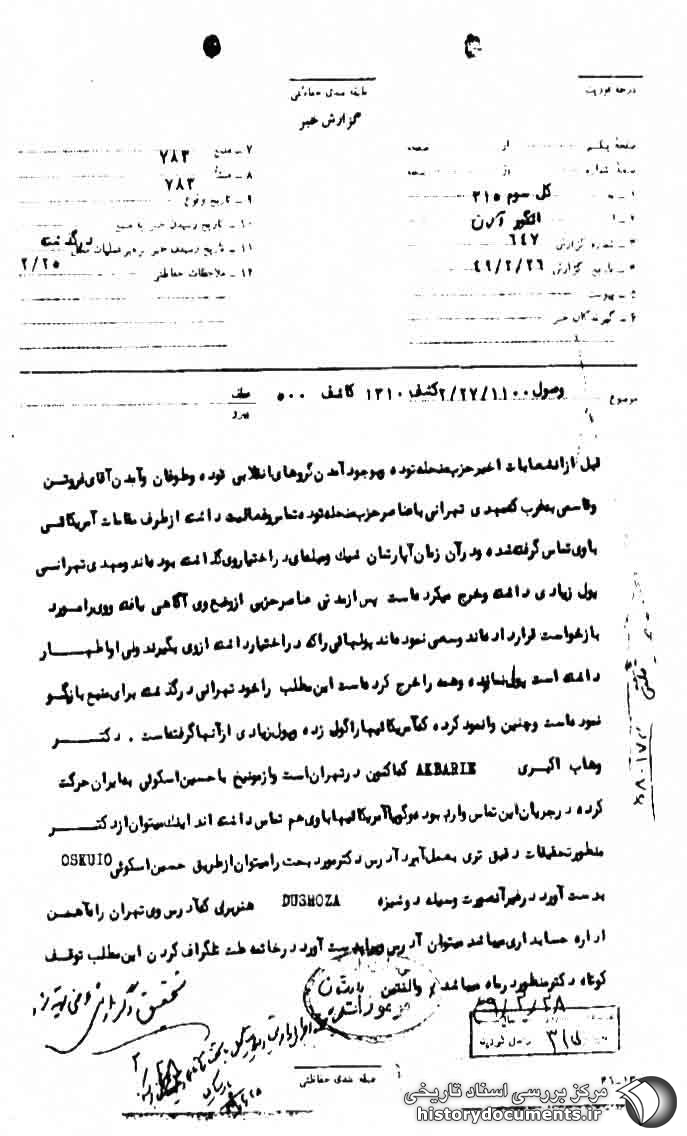 درجه فوریت
طبقه بندی حفاظتی
گزارش خبر
صفحهٔ یکم از صفحه
صفحهٔ شماره از صفحه
۱ - به کل سوم ۳۱۵
۲ - از
۳ - شماره گزارش ۶۴۷
۴ - تاریخ گزارش ۴۹/۲/۲۶
۵ - پیوست
۶ - گیرندگان خبر
۷ - منبع ۷۸۳
۸ - منشأ ۷۸۳
۹ - تاریخ وقوع
۱۰ - تاریخ رسیدن خبر به منبع درگذشته
۱۱ - تاریخ رسیدن خبر به رهبر عملیات محل ۲/۲۵
۱۲ - ملاحظات حفاظتی
موضوع وصول ۲/۲۷/۱۱۰۰ کشف ۱۳۱۰ کاشف ۵۰۰ عطف
پیرو
قبل از انشعابات اخیر حزب منحله توده و بوجود آمدن گروهای انقلابی توده و طوفان و آمدن آقای فروتن
و قاسمی بغرب که مهدی تهرانی با عناصر حزب منحله توده تماس و فعالیت داشته از طرف مقامات آمریکائی
با وی تماس گرفته شده و در آن زمان آپارتمان شیک وسیله‌ای در اختیار وی گذاشته بودهاند و مهدی تهرانی
پول زیادی داشته و خرج میکرده است پس از مدتی عناصر حزبی از وضع وی آگاهی یافته و وی را مورد
بازخواست قرار دادهاند و سعی نمودهاند پولهائی را که در اختیار داشته از وی بگیرند ولی او اظهار
داشته است پول نمانده و همه را خرج کرده است این مطلب را خود تهرانی در گذشته برای منبع بازگو
نموده است و چنین وانمود کرده که آمریکائیها را گول زده و پول زیادی از آنها گرفته است . دکتر
وهاب اکبری AKBARIE که اکنون در تهران است و از مونیخ با حسین اسکوئی به ایران حرکت
کرده در جریان این تماس وارد بوده و گویا آمریکائیها با وی هم تماس داشته اند اینک میتوان از دکتر
منظور تحقیقات دقیق تری بعمل آورد آدرس دکتر مورد بحث را میتوان از طریق حسین اسکوئی OSKUIO
بدست آورد در غیر آنصورت وسیله دوشیزه DUSHOZA هنربری که آدرس وی تهران راه آهن
اداره حسابداری میباشد میتوان آدرس ویرا بدست آورد در خاتمه علت تلگراف کردن این مطلب توقف
کوتاه دکتر منظور در ماه میباشد والفتین پارتیان
رمز مورات
۴۹/۲/۲۸
۳۱
طبقه بندی حفاظتی
۲۱-۱۳
مرکز بررسی اسناد تاریخی
historydocuments.ir